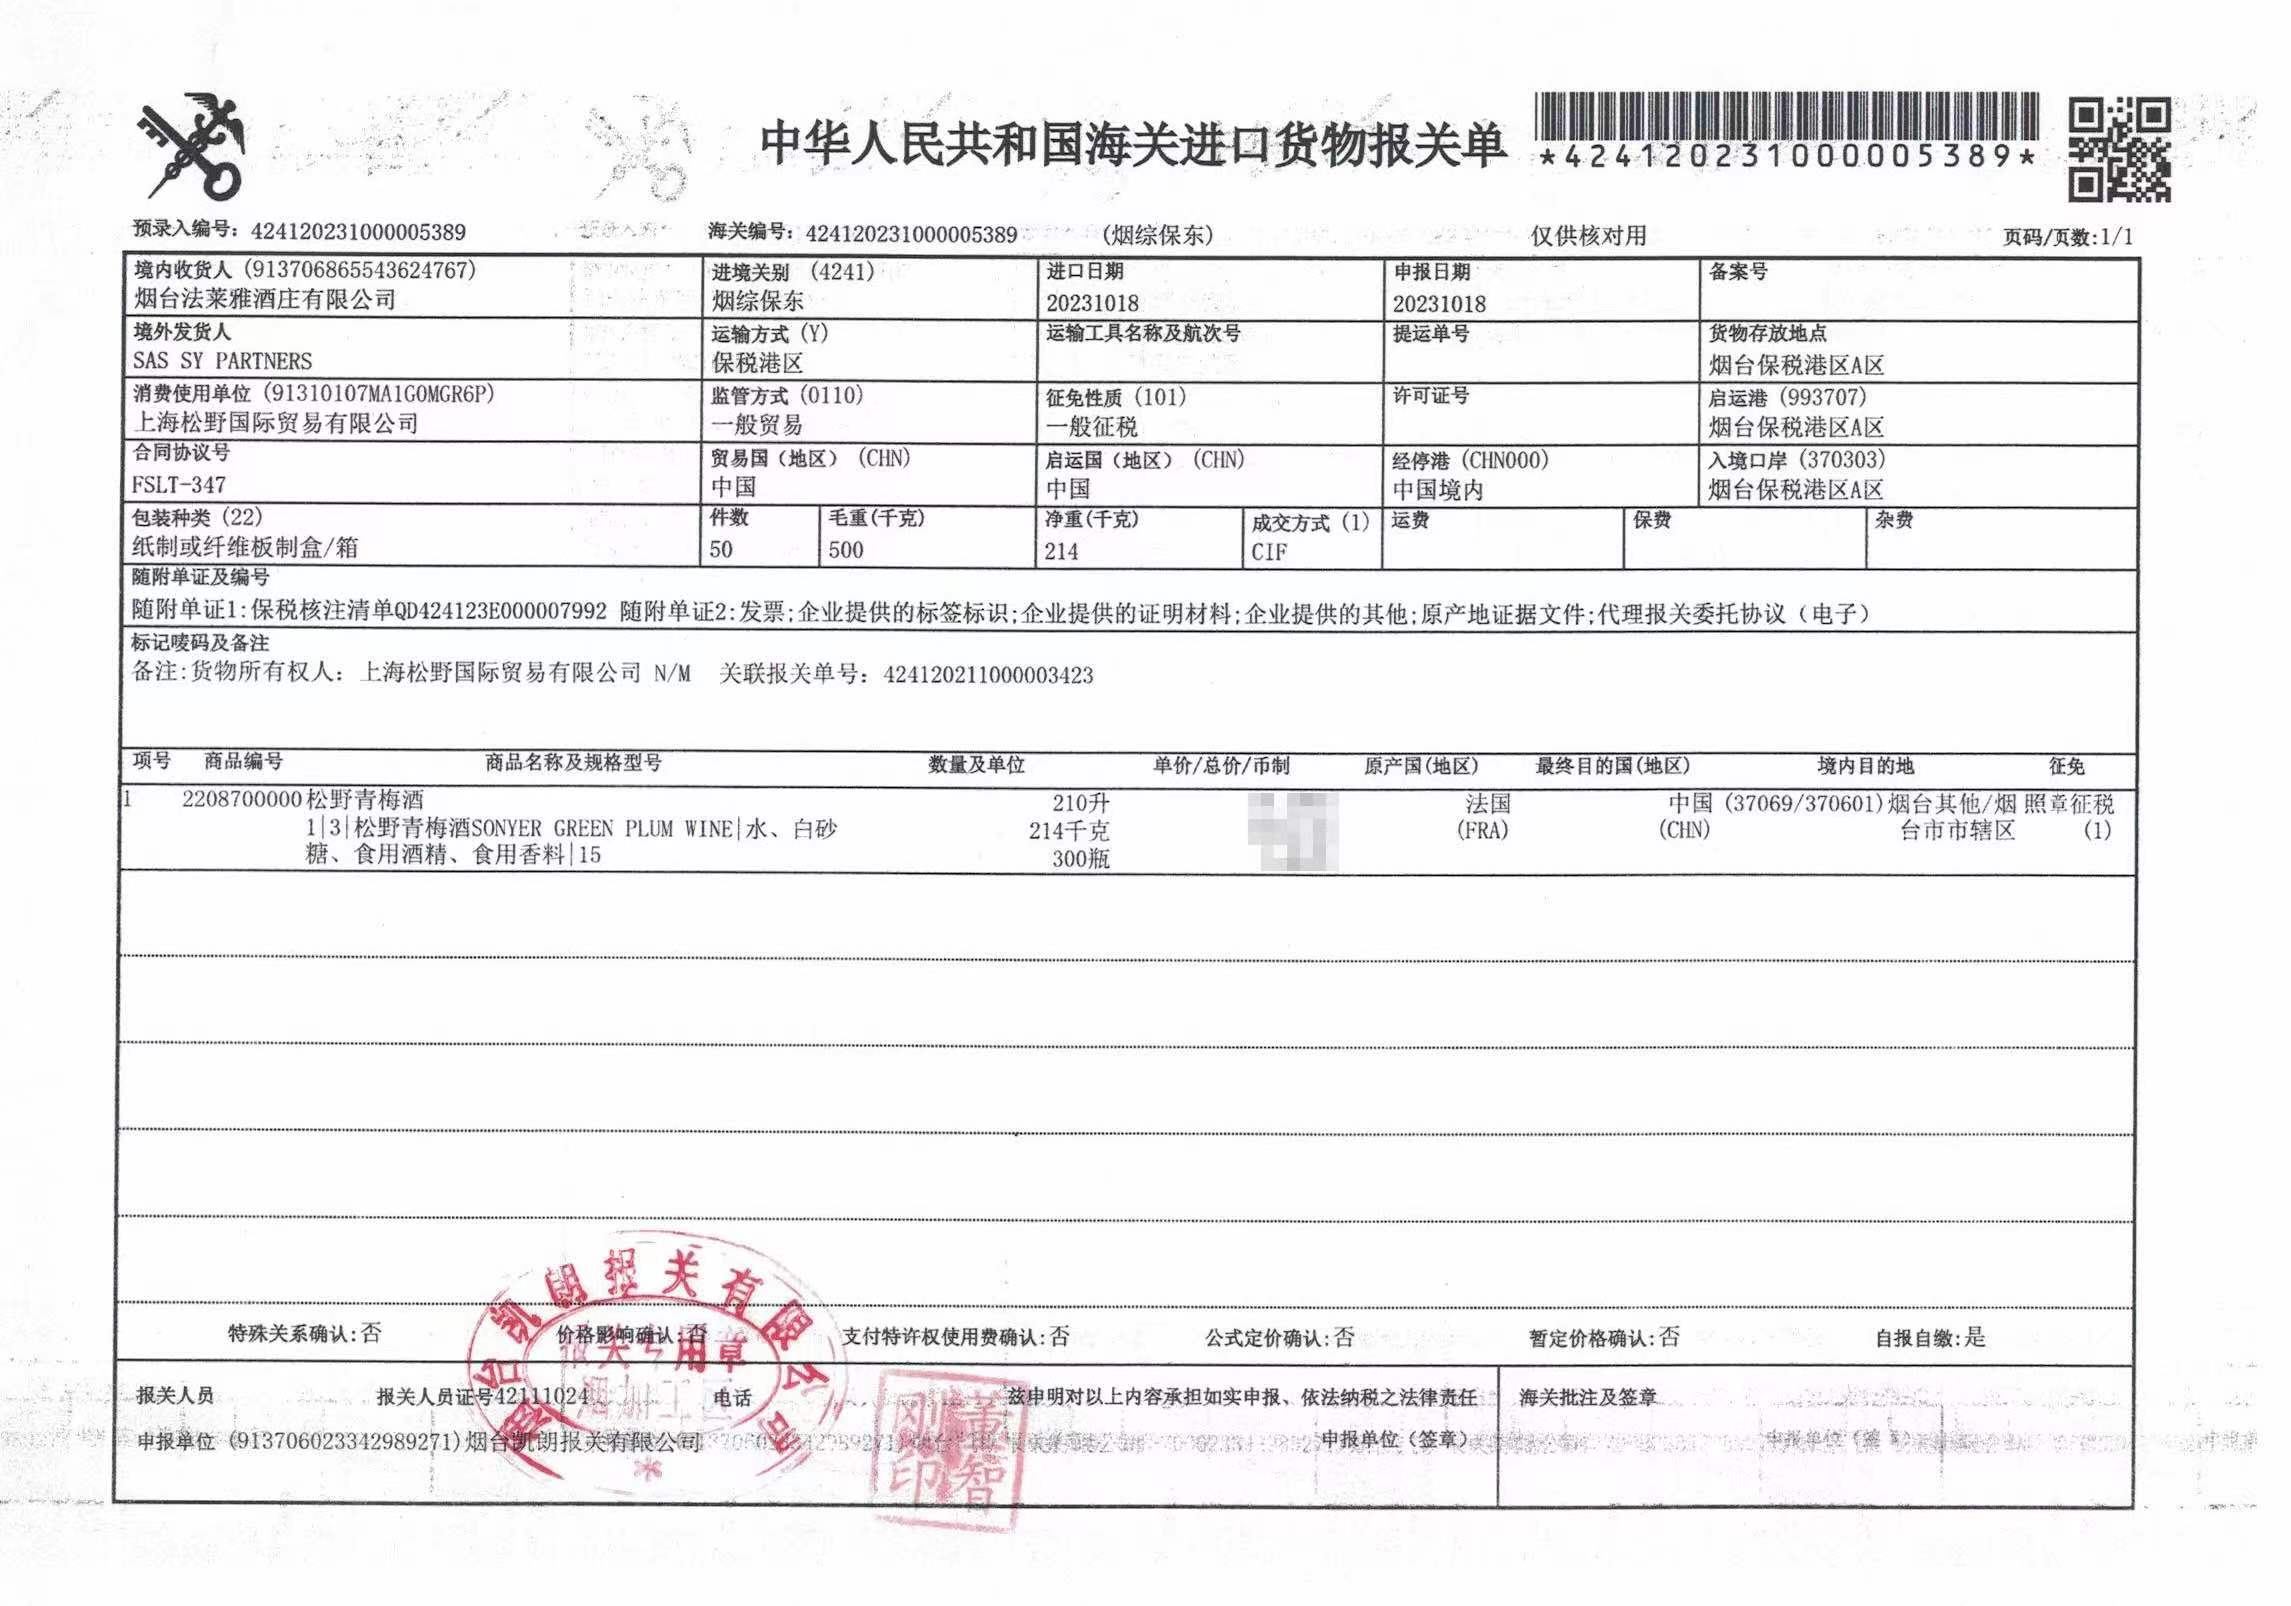 中华人民共和国海关进口货物报关单
*424120231000005389*
预录入编号：424120231000005389 海关编号：424120231000005389 (烟综保东) 仅供核对用 页码/页数:1/1
境内收货人 (913706865543624767) 进境关别 (4241) 进口日期 申报日期 备案号
烟台法莱雅酒庄有限公司 烟综保东 20231018 20231018
境外发货人 运输方式 (Y) 运输工具名称及航次号 提运单号 货物存放地点
SAS SY PARTNERS 保税港区 烟台保税港区A区
消费使用单位 (91310107MA1G0MGR6P) 监管方式 (0110) 征免性质 (101) 许可证号 启运港 (993707)
上海松野国际贸易有限公司 一般贸易 一般征税 烟台保税港区A区
合同协议号 贸易国（地区） (CHN) 启运国（地区） (CHN) 经停港 (CHN000) 入境口岸 (370303)
FSLT-347 中国 中国 中国境内 烟台保税港区A区
包装种类 (22) 件数 毛重(千克) 净重(千克) 成交方式 (1) 运费 保费 杂费
纸制或纤维板制盒/箱 50 500 214 CIF
随附单证及编号
随附单证1:保税核注清单QD424123E000007992 随附单证2:发票;企业提供的标签标识;企业提供的证明材料;企业提供的其他;原产地证据文件;代理报关委托协议（电子）
标记唛码及备注
备注:货物所有权人：上海松野国际贸易有限公司 N/M 关联报关单号：424120211000003423
项号 商品编号 商品名称及规格型号 数量及单位 单价/总价/币制 原产国(地区) 最终目的国(地区) 境内目的地 征免
1 2208700000 松野青梅酒 210升 法国 中国 (37069/370601)烟台其他/烟 照章征税
1|3|松野青梅酒SONYER GREEN PLUM WINE|水、白砂 214千克 (FRA) (CHN) 台市市辖区 (1)
糖、食用酒精、食用香料|15 300瓶
特殊关系确认:否 价格影响确认:否 支付特许权使用费确认:否 公式定价确认:否 暂定价格确认:否 自报自缴:是
报关人员 报关人员证号42111024 电话 兹申明对以上内容承担如实申报、依法纳税之法律责任 海关批注及签章
申报单位 (913706023342989271)烟台凯朗报关有限公司 申报单位（签章）
烟台凯朗报关有限公司
报关专用章
董智刚印